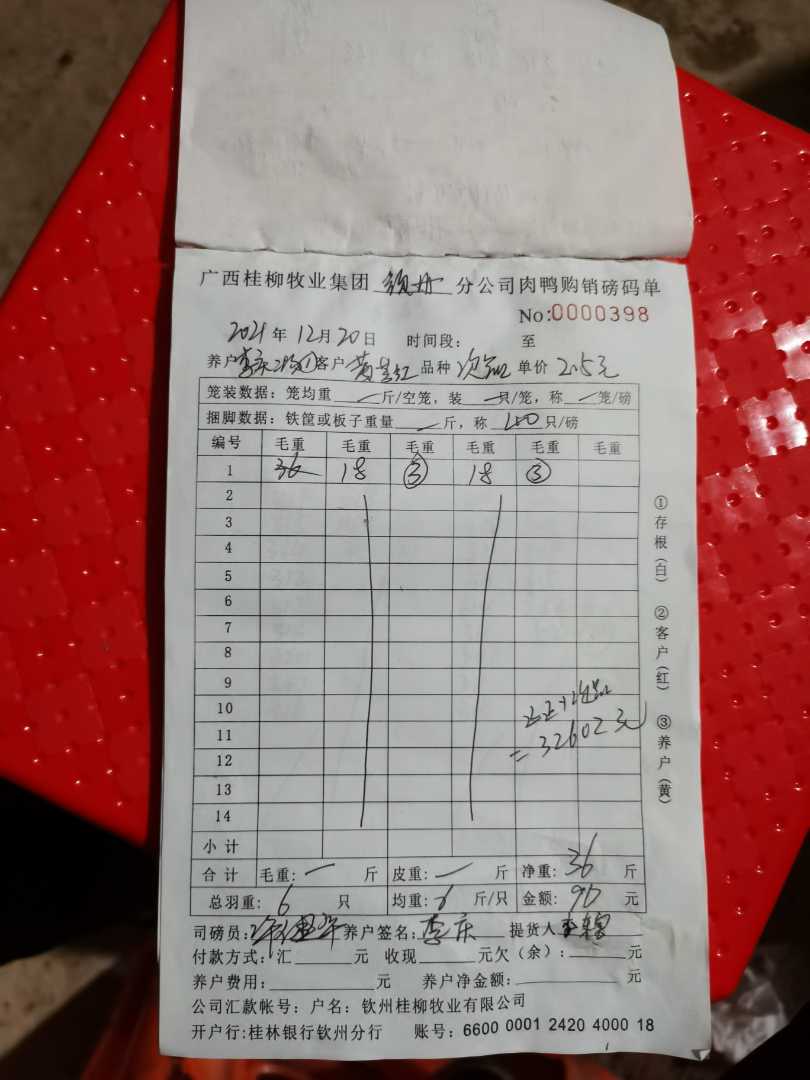 广西桂柳牧业集团 钦州 分公司肉鸭购销磅码单
No:0000398
2021年 12月 20日 时间段: 至
养户 李庆 客户 黄 红 品种 次品 单价 2.5元
笼装数据: 笼均重 一 斤/空笼, 装 一 只/笼, 称 一 笼/磅
捆脚数据: 铁筐或板子重量 一 斤, 称 150 只/磅
编号 毛重 毛重 毛重 毛重 毛重 毛重
1 36 18 ③ 18 ③
2
3
4
5
6
7
8
9
10
11
12
13
14
正+次品
=32602元
小计
合计 毛重: 一 斤 皮重: 一 斤 净重: 36 斤
总羽重: 6 只 均重: 6 斤/只 金额: 90 元
司磅员: 养户签名: 李庆 提货人
付款方式: 汇 元 收现 元欠(余): 元
养户费用: 元 养户净金额: 元
公司汇款帐号: 户名: 钦州桂柳牧业有限公司
开户行:桂林银行钦州分行 账号: 6600 0001 2420 4000 18
①存根(白) ②客户(红) ③养户(黄)